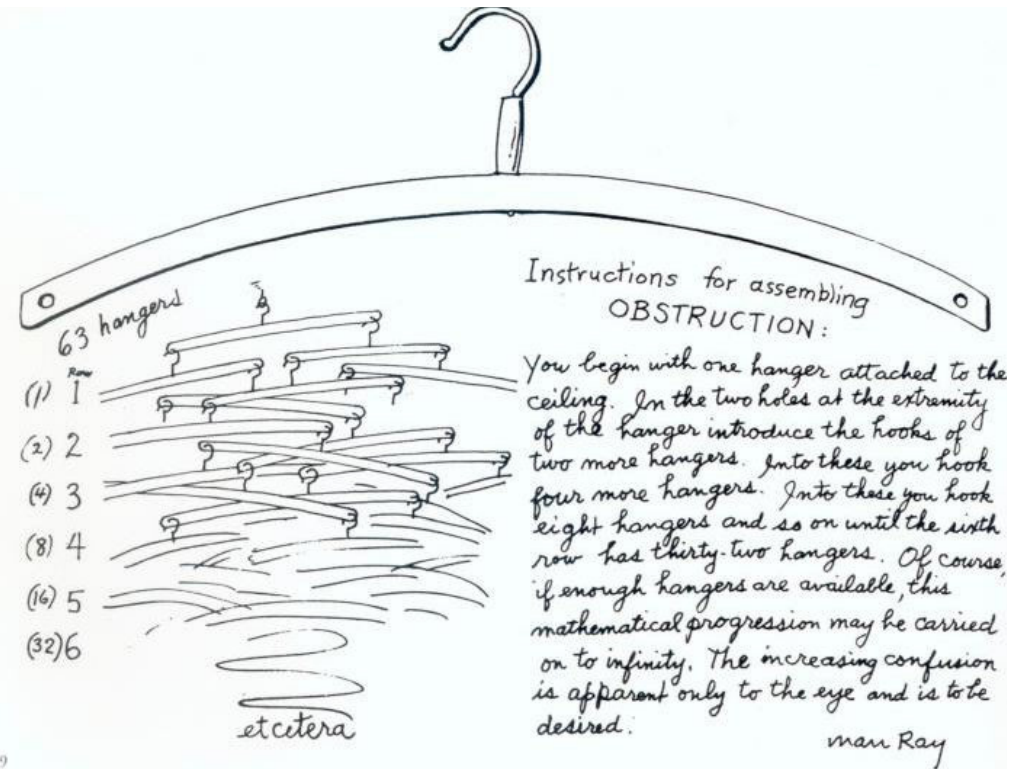 63 hangers
Row
(1) 1
(2) 2
(4) 3
(8) 4
(16) 5
(32) 6
etcetera
Instructions for assembling
OBSTRUCTION:
You begin with one hanger attached to the
ceiling. In the two holes at the extremity
of the hanger introduce the hooks of
two more hangers. Into these you hook
four more hangers. Into these you hook
eight hangers and so on until the sixth
row has thirty-two hangers. Of course,
if enough hangers are available, this
mathematical progression may be carried
on to infinity. The increasing confusion
is apparent only to the eye and is to be
desired.
man Ray
9